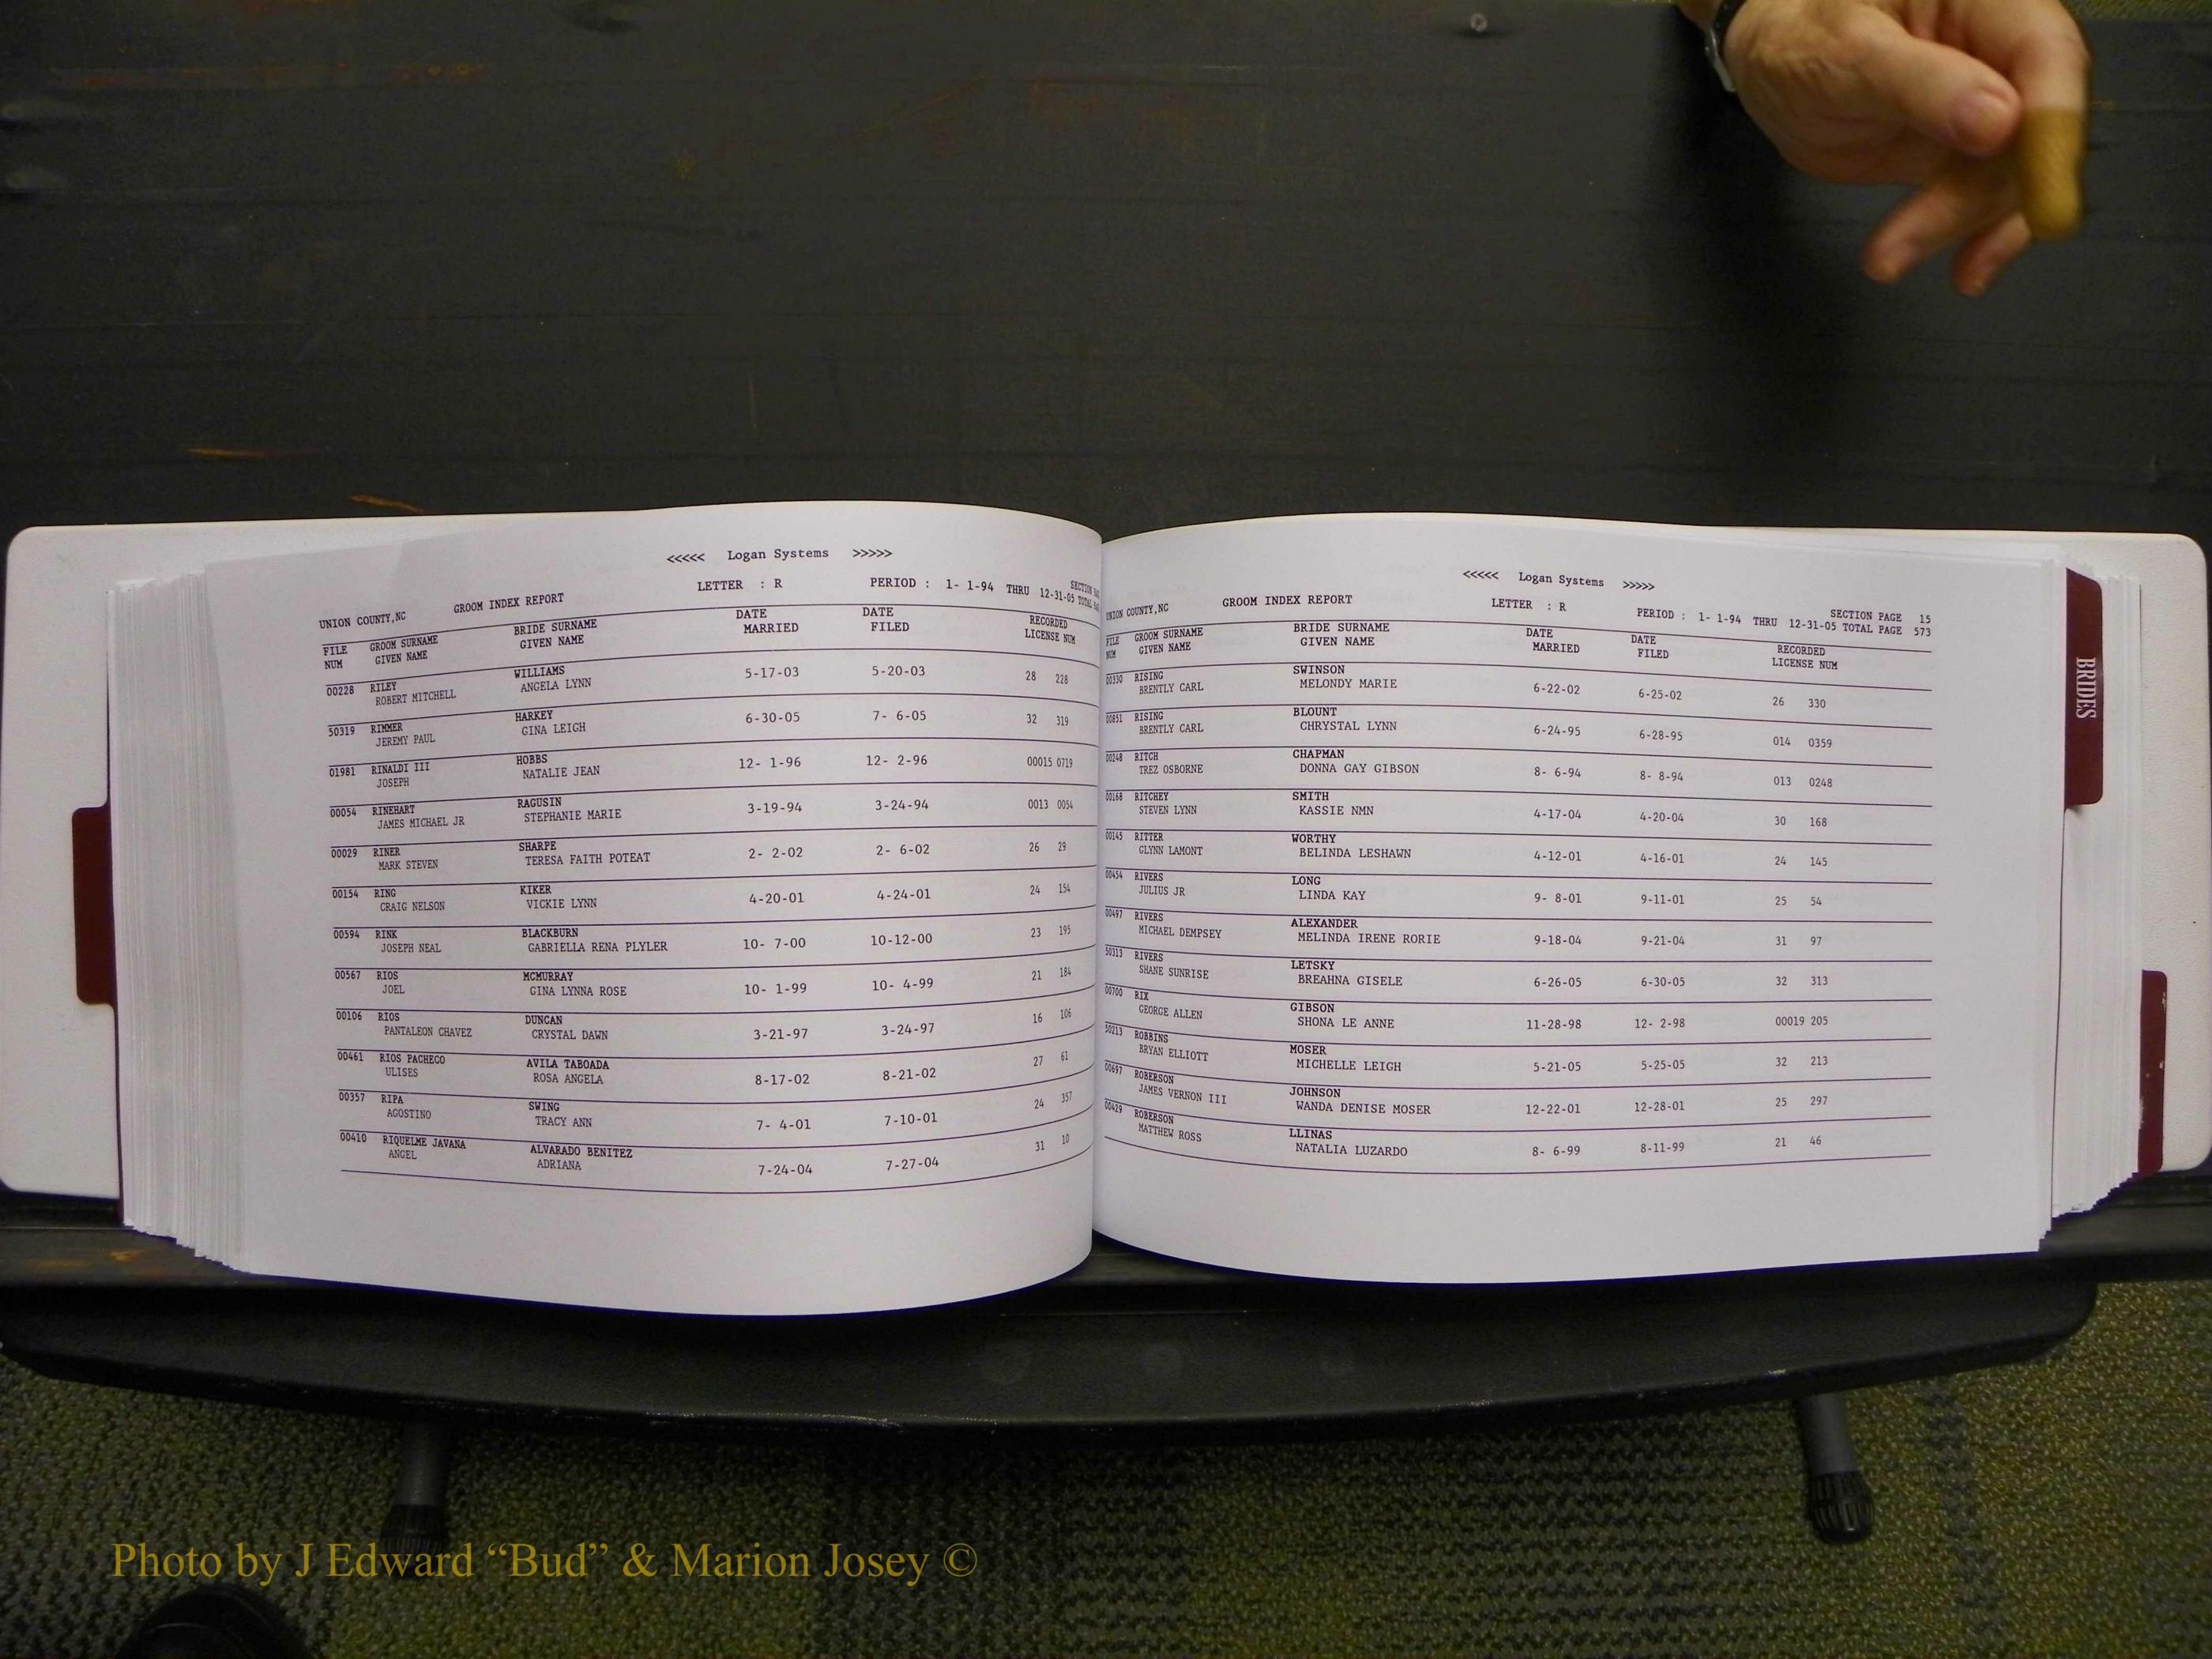 <<<<< Logan Systems >>>>>
LETTER : R PERIOD : 1- 1-94 THRU 12-31-05
UNION COUNTY,NC GROOM INDEX REPORT
FILE NUM GROOM SURNAME GIVEN NAME BRIDE SURNAME GIVEN NAME DATE MARRIED DATE FILED RECORDED LICENSE NUM
00228 RILEY WILLIAMS
ROBERT MITCHELL ANGELA LYNN 5-17-03 5-20-03 28 228
50319 RIMMER HARKEY
JEREMY PAUL GINA LEIGH 6-30-05 7- 6-05 32 319
01981 RINALDI III HOBBS
JOSEPH NATALIE JEAN 12- 1-96 12- 2-96 00015 0719
00054 RINEHART RAGUSIN
JAMES MICHAEL JR STEPHANIE MARIE 3-19-94 3-24-94 0013 0054
00029 RINER SHARPE
MARK STEVEN TERESA FAITH POTEAT 2- 2-02 2- 6-02 26 29
00154 RING KIKER
CRAIG NELSON VICKIE LYNN 4-20-01 4-24-01 24 154
00594 RINK BLACKBURN
JOSEPH NEAL GABRIELLA RENA PLYLER 10- 7-00 10-12-00 23 195
00567 RIOS MCMURRAY
JOEL GINA LYNNA ROSE 10- 1-99 10- 4-99 21 184
00106 RIOS DUNCAN
PANTALEON CHAVEZ CRYSTAL DAWN 3-21-97 3-24-97 16 106
00461 RIOS PACHECO AVILA TABOADA
ULISES ROSA ANGELA 8-17-02 8-21-02 27 61
00357 RIPA SWING
AGOSTINO TRACY ANN 7- 4-01 7-10-01 24 357
00410 RIQUELME JAVANA ALVARADO BENITEZ
ANGEL ADRIANA 7-24-04 7-27-04 31 10
<<<<< Logan Systems >>>>>
LETTER : R PERIOD : 1- 1-94 THRU 12-31-05 SECTION PAGE 15
UNION COUNTY,NC GROOM INDEX REPORT TOTAL PAGE 573
FILE NUM GROOM SURNAME GIVEN NAME BRIDE SURNAME GIVEN NAME DATE MARRIED DATE FILED RECORDED LICENSE NUM
00330 RISING SWINSON
BRENTLY CARL MELONDY MARIE 6-22-02 6-25-02 26 330
00851 RISING BLOUNT
BRENTLY CARL CHRYSTAL LYNN 6-24-95 6-28-95 014 0359
00248 RITCH CHAPMAN
TREZ OSBORNE DONNA GAY GIBSON 8- 6-94 8- 8-94 013 0248
00168 RITCHEY SMITH
STEVEN LYNN KASSIE NMN 4-17-04 4-20-04 30 168
00145 RITTER WORTHY
GLYNN LAMONT BELINDA LESHAWN 4-12-01 4-16-01 24 145
00454 RIVERS LONG
JULIUS JR LINDA KAY 9- 8-01 9-11-01 25 54
00497 RIVERS ALEXANDER
MICHAEL DEMPSEY MELINDA IRENE RORIE 9-18-04 9-21-04 31 97
50313 RIVERS LETSKY
SHANE SUNRISE BREAHNA GISELE 6-26-05 6-30-05 32 313
00700 RIX GIBSON
GEORGE ALLEN SHONA LE ANNE 11-28-98 12- 2-98 00019 205
50213 ROBBINS MOSER
BRYAN ELLIOTT MICHELLE LEIGH 5-21-05 5-25-05 32 213
00697 ROBERSON JOHNSON
JAMES VERNON III WANDA DENISE MOSER 12-22-01 12-28-01 25 297
00429 ROBERSON LLINAS
MATTHEW ROSS NATALIA LUZARDO 8- 6-99 8-11-99 21 46
BRIDES
Photo by J Edward “Bud” & Marion Josey ©